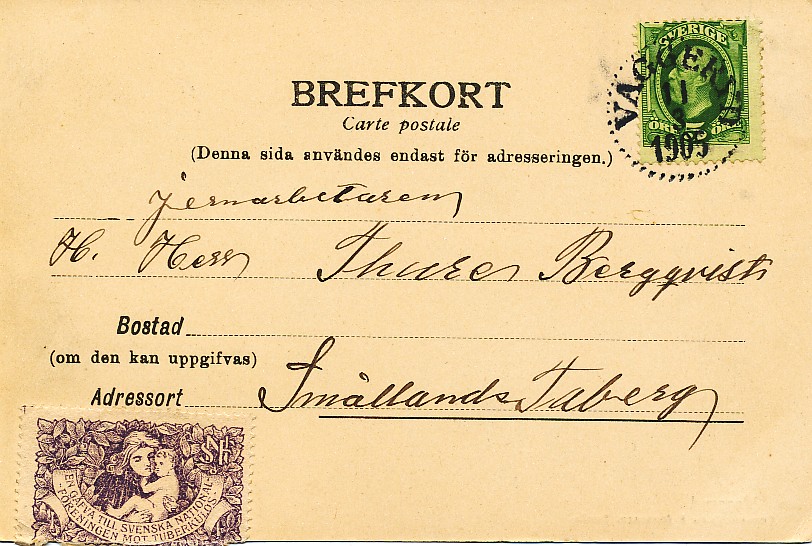 SVERIGE
VAGGERYD
11
3
1905
ÖRE 5 ÖRE
BREFKORT
Carte postale
(Denna sida användes endast för adresseringen.)
jernarbetaren
H. Herr Thure Bergqvist
Bostad
(om den kan uppgifvas)
Adressort Smållands Taberg
EN GÅFVA TILL SVENSKA NATIONAL
FÖRENINGEN MOT TUBERKULOS